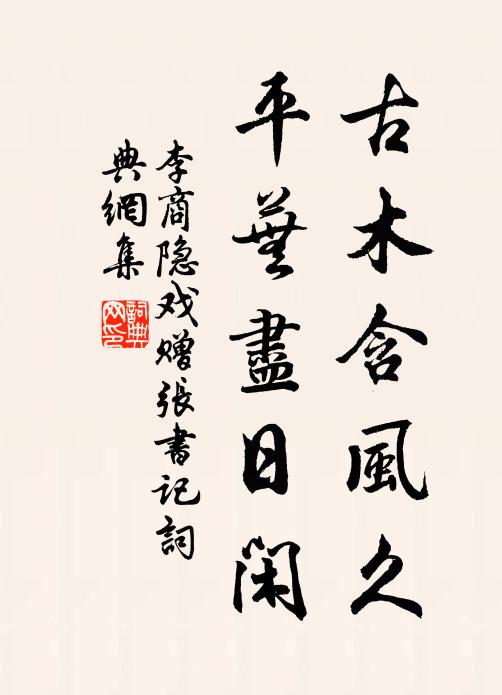 古木含風久
平蕪盡日閑
李商隐戏贈張書记詞
典網集
詞典
网印